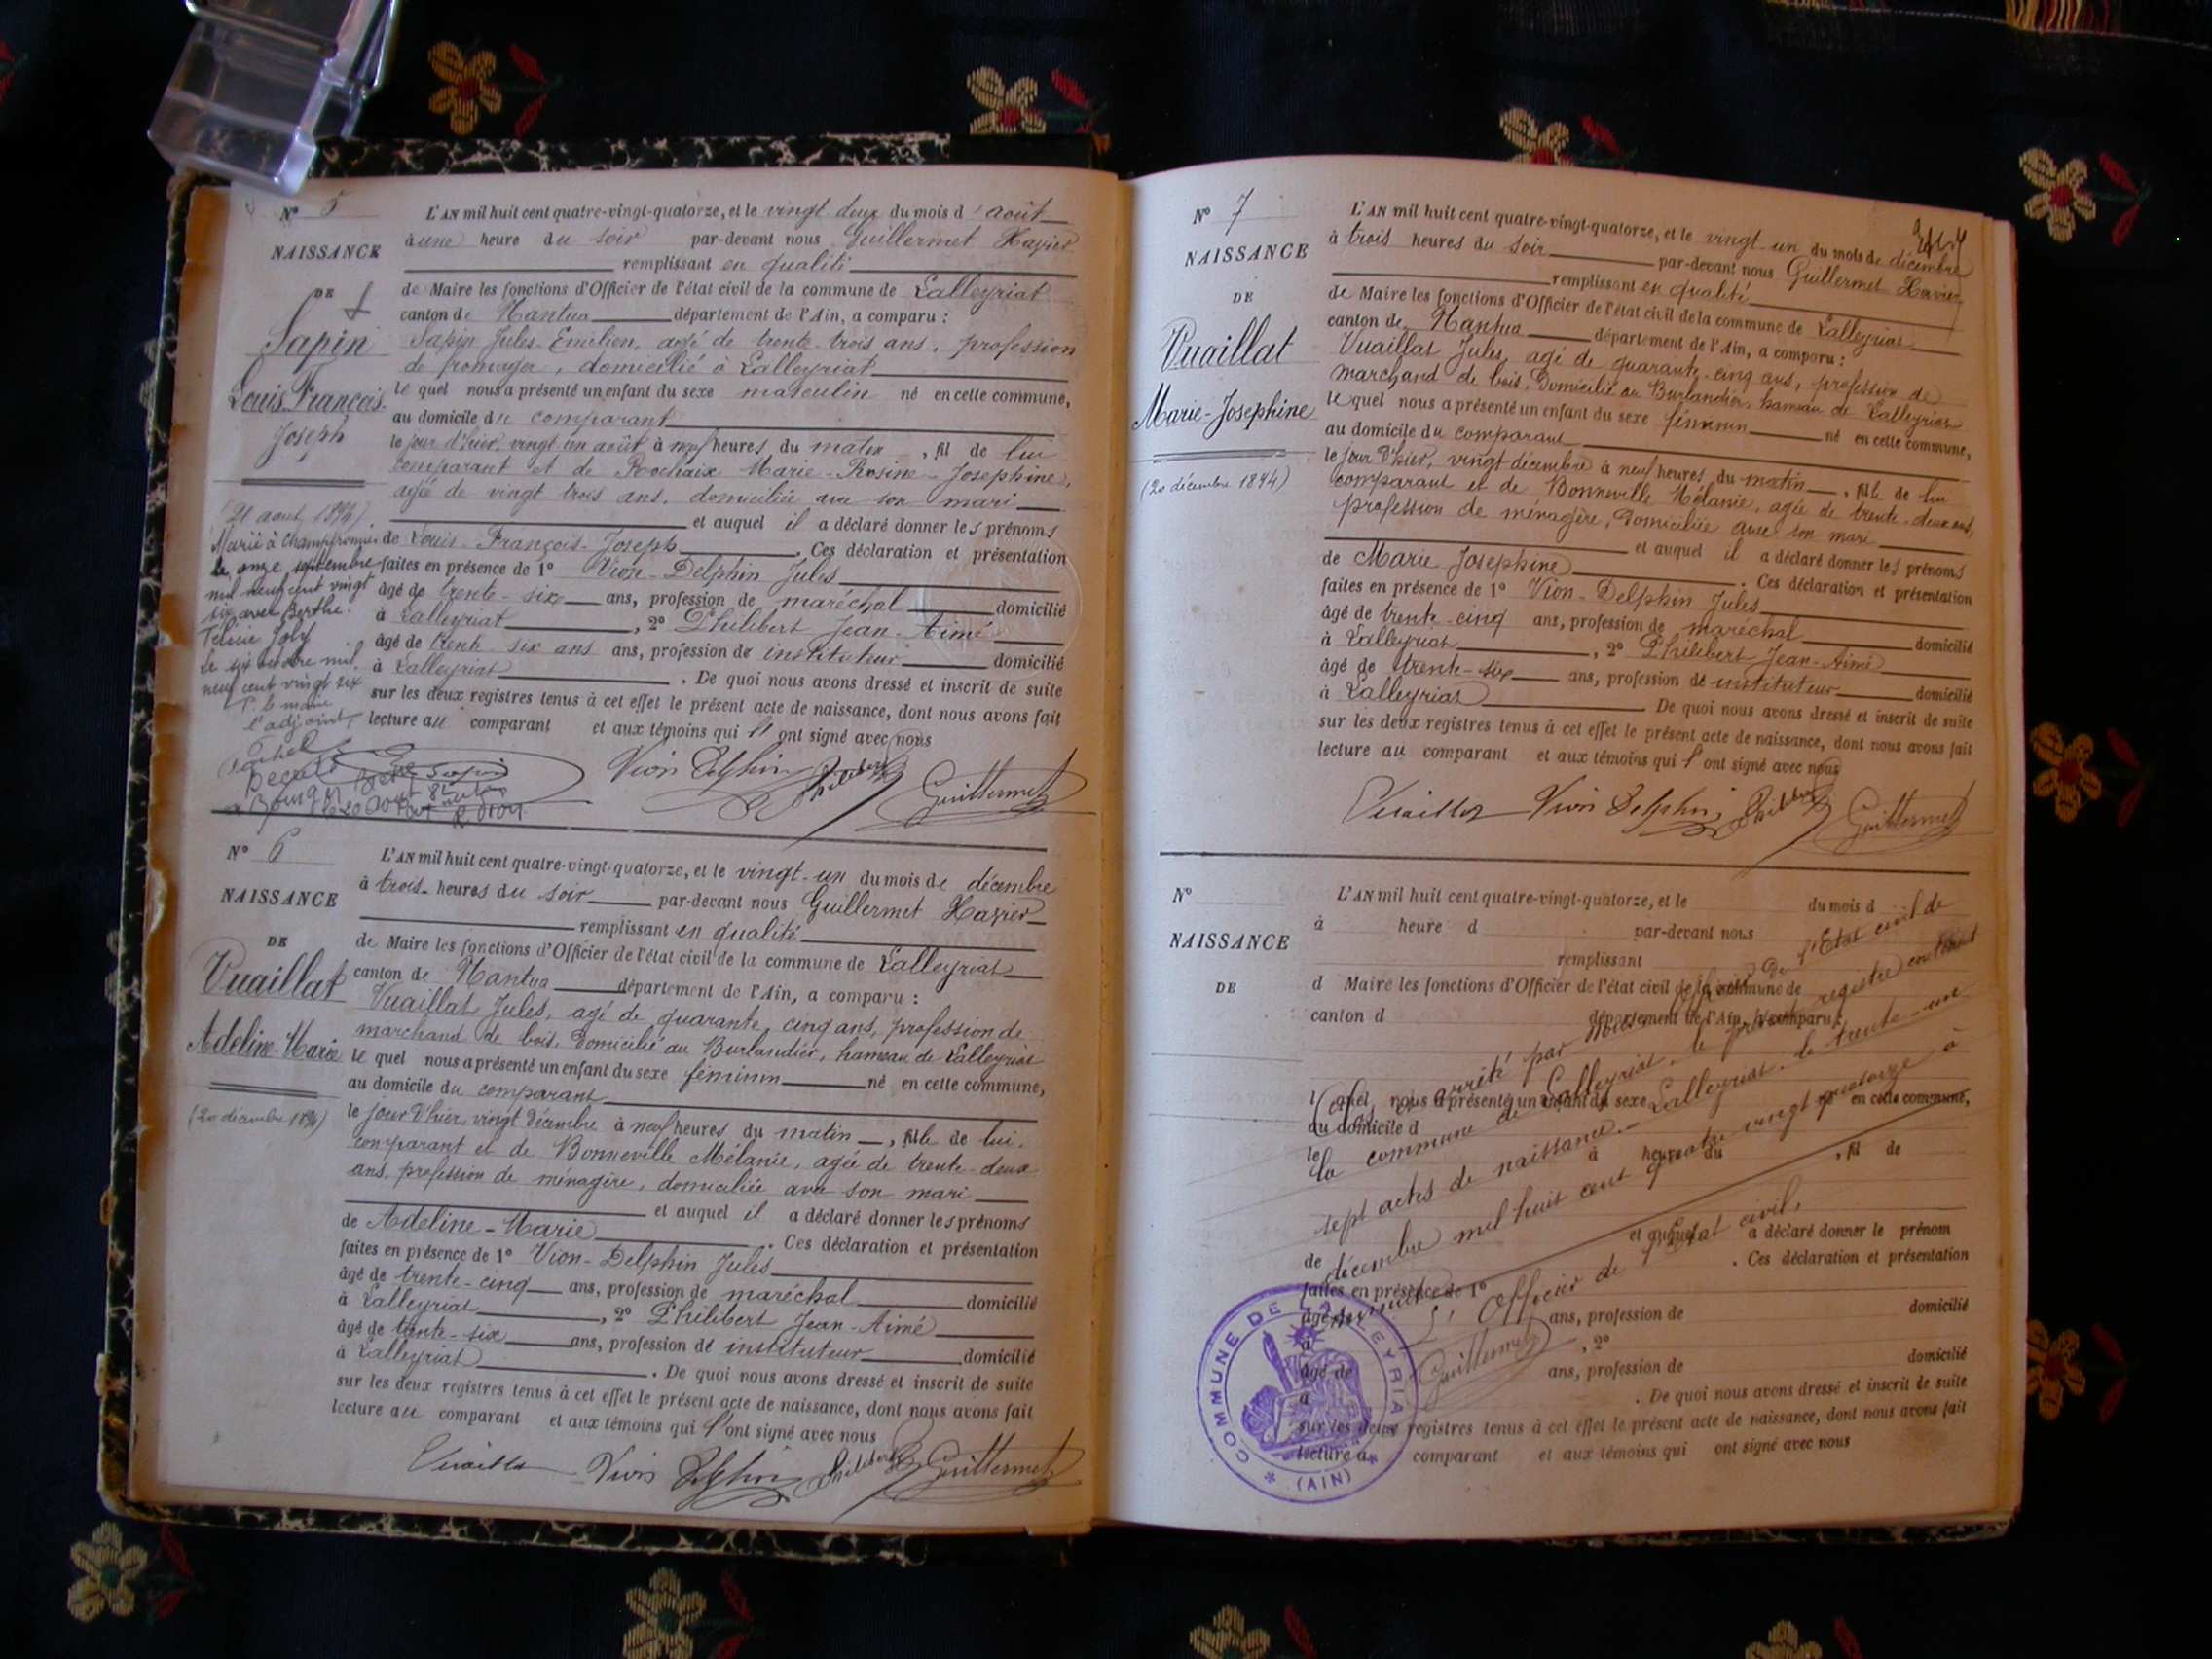 N° 5
NAISSANCE
DE
Sapin
Louis-François-
Joseph
(21 août 1894)
Marié à Champfromier
le onze septembre
mil neuf cent vingt
six avec Berthe
Félicie Joly
le six octobre mil
neuf cent vingt six
P. le maire
l'adjoint,
Décédé
à Bourg en Bresse
le 20 août
L'AN mil huit cent quatre-vingt-quatorze, et le vingt deux du mois d'août
à une heure du soir par-devant nous Guillermet Xavier
remplissant en qualité
de Maire les fonctions d'Officier de l'état civil de la commune de Lalleyriat
canton de Nantua département de l'Ain, a comparu :
Sapin Jules-Emilien, agé de trente-trois ans, profession
de fromager, domicilié à Lalleyriat
le quel nous a présenté un enfant du sexe masculin né en cette commune,
au domicile du comparant
le jour d'hier, vingt un août à neuf heures du matin, fil de lui
comparant et de Rochaix Marie-Rosine-Josephine,
agée de vingt trois ans, domiciliée avec son mari
et auquel il a déclaré donner les prénoms
de Louis-François-Joseph. Ces déclaration et présentation
faites en présence de 1° Vion-Delphin Jules
âgé de trente-six ans, profession de maréchal domicilié
à Lalleyriat, 2° Philibert Jean-Aimé
âgé de trente six ans ans, profession de instituteur domicilié
à Lalleyriat. De quoi nous avons dressé et inscrit de suite
sur les deux registres tenus à cet effet le présent acte de naissance, dont nous avons fait
lecture au comparant et aux témoins qui l'ont signé avec nous
Sapin Vion Delphin Philibert Guillermet
N° 6
NAISSANCE
DE
Vuaillat
Adeline-Marie
(20 décembre 1894)
L'AN mil huit cent quatre-vingt-quatorze, et le vingt-un du mois de décembre
à trois heures du soir par-devant nous Guillermet Xavier
remplissant en qualité
de Maire les fonctions d'Officier de l'état civil de la commune de Lalleyriat
canton de Nantua département de l'Ain, a comparu :
Vuaillat Jules, agé de quarante-cinq ans, profession de
marchand de bois, domicilié au Burlandier, hameau de Lalleyriat
le quel nous a présenté un enfant du sexe féminin né en cette commune,
au domicile du comparant
le jour d'hier, vingt décembre à neuf heures du matin, fille de lui
comparant et de Bonneville Mélanie, agée de trente-deux
ans, profession de ménagère, domiciliée avec son mari
et auquel il a déclaré donner les prénoms
de Adeline-Marie. Ces déclaration et présentation
faites en présence de 1° Vion-Delphin Jules
âgé de trente-cinq ans, profession de maréchal domicilié
à Lalleyriat, 2° Philibert Jean-Aimé
âgé de trente-six ans, profession de instituteur domicilié
à Lalleyriat. De quoi nous avons dressé et inscrit de suite
sur les deux registres tenus à cet effet le présent acte de naissance, dont nous avons fait
lecture au comparant et aux témoins qui l'ont signé avec nous
Vuaillat Vion Delphin Philibert Guillermet
N° 7
NAISSANCE
DE
Vuaillat
Marie-Josephine
(20 décembre 1894)
L'AN mil huit cent quatre-vingt-quatorze, et le vingt-un du mois de décembre
à trois heures du soir par-devant nous Guillermet Xavier
remplissant en qualité
de Maire les fonctions d'Officier de l'état civil de la commune de Lalleyriat
canton de Nantua département de l'Ain, a comparu :
Vuaillat Jules, agé de quarante-cinq ans, profession de
marchand de bois, domicilié au Burlandier, hameau de Lalleyriat
le quel nous a présenté un enfant du sexe féminin né en cette commune,
au domicile du comparant
le jour d'hier, vingt décembre à neuf heures du matin, fille de lui
comparant et de Bonneville Mélanie, agée de trente-deux ans,
profession de ménagère, domiciliée avec son mari
et auquel il a déclaré donner les prénoms
de Marie Josephine. Ces déclaration et présentation
faites en présence de 1° Vion-Delphin Jules
âgé de trente-cinq ans, profession de maréchal domicilié
à Lalleyriat, 2° Philibert Jean-Aimé
âgé de trente-six ans, profession de instituteur domicilié
à Lalleyriat De quoi nous avons dressé et inscrit de suite
sur les deux registres tenus à cet effet le présent acte de naissance, dont nous avons fait
lecture au comparant et aux témoins qui l'ont signé avec nous
Vuaillat Vion Delphin Philibert Guillermet
N°
NAISSANCE
DE
L'AN mil huit cent quatre-vingt-quatorze, et le du mois d
à heure d par-devant nous
remplissant
d Maire les fonctions d'Officier de l'état civil de la commune de
canton d département de l'Ain, a comparu :
l quel nous a présenté un enfant du sexe né en cette commune,
au domicile d
le à heures du, fil de
et auquel a déclaré donner le prénom
de. Ces déclaration et présentation
faites en présence de 1°
âgé de ans, profession de domicilié
à, 2°
âgé de ans, profession de domicilié
à. De quoi nous avons dressé et inscrit de suite
sur les deux registres tenus à cet effet le présent acte de naissance, dont nous avons fait
lecture a comparant et aux témoins qui ont signé avec nous
Clos et arrêté par nous officier de l'Etat civil de
la commune de Lalleyriat, le présent registre contenant
sept actes de naissance. Lalleyriat, le trente-un
décembre mil huit cent quatre vingt quatorze à
L'Officier de l'Etat civil,
Guillermet
COMMUNE DE LALLEYRIAT
(AIN)